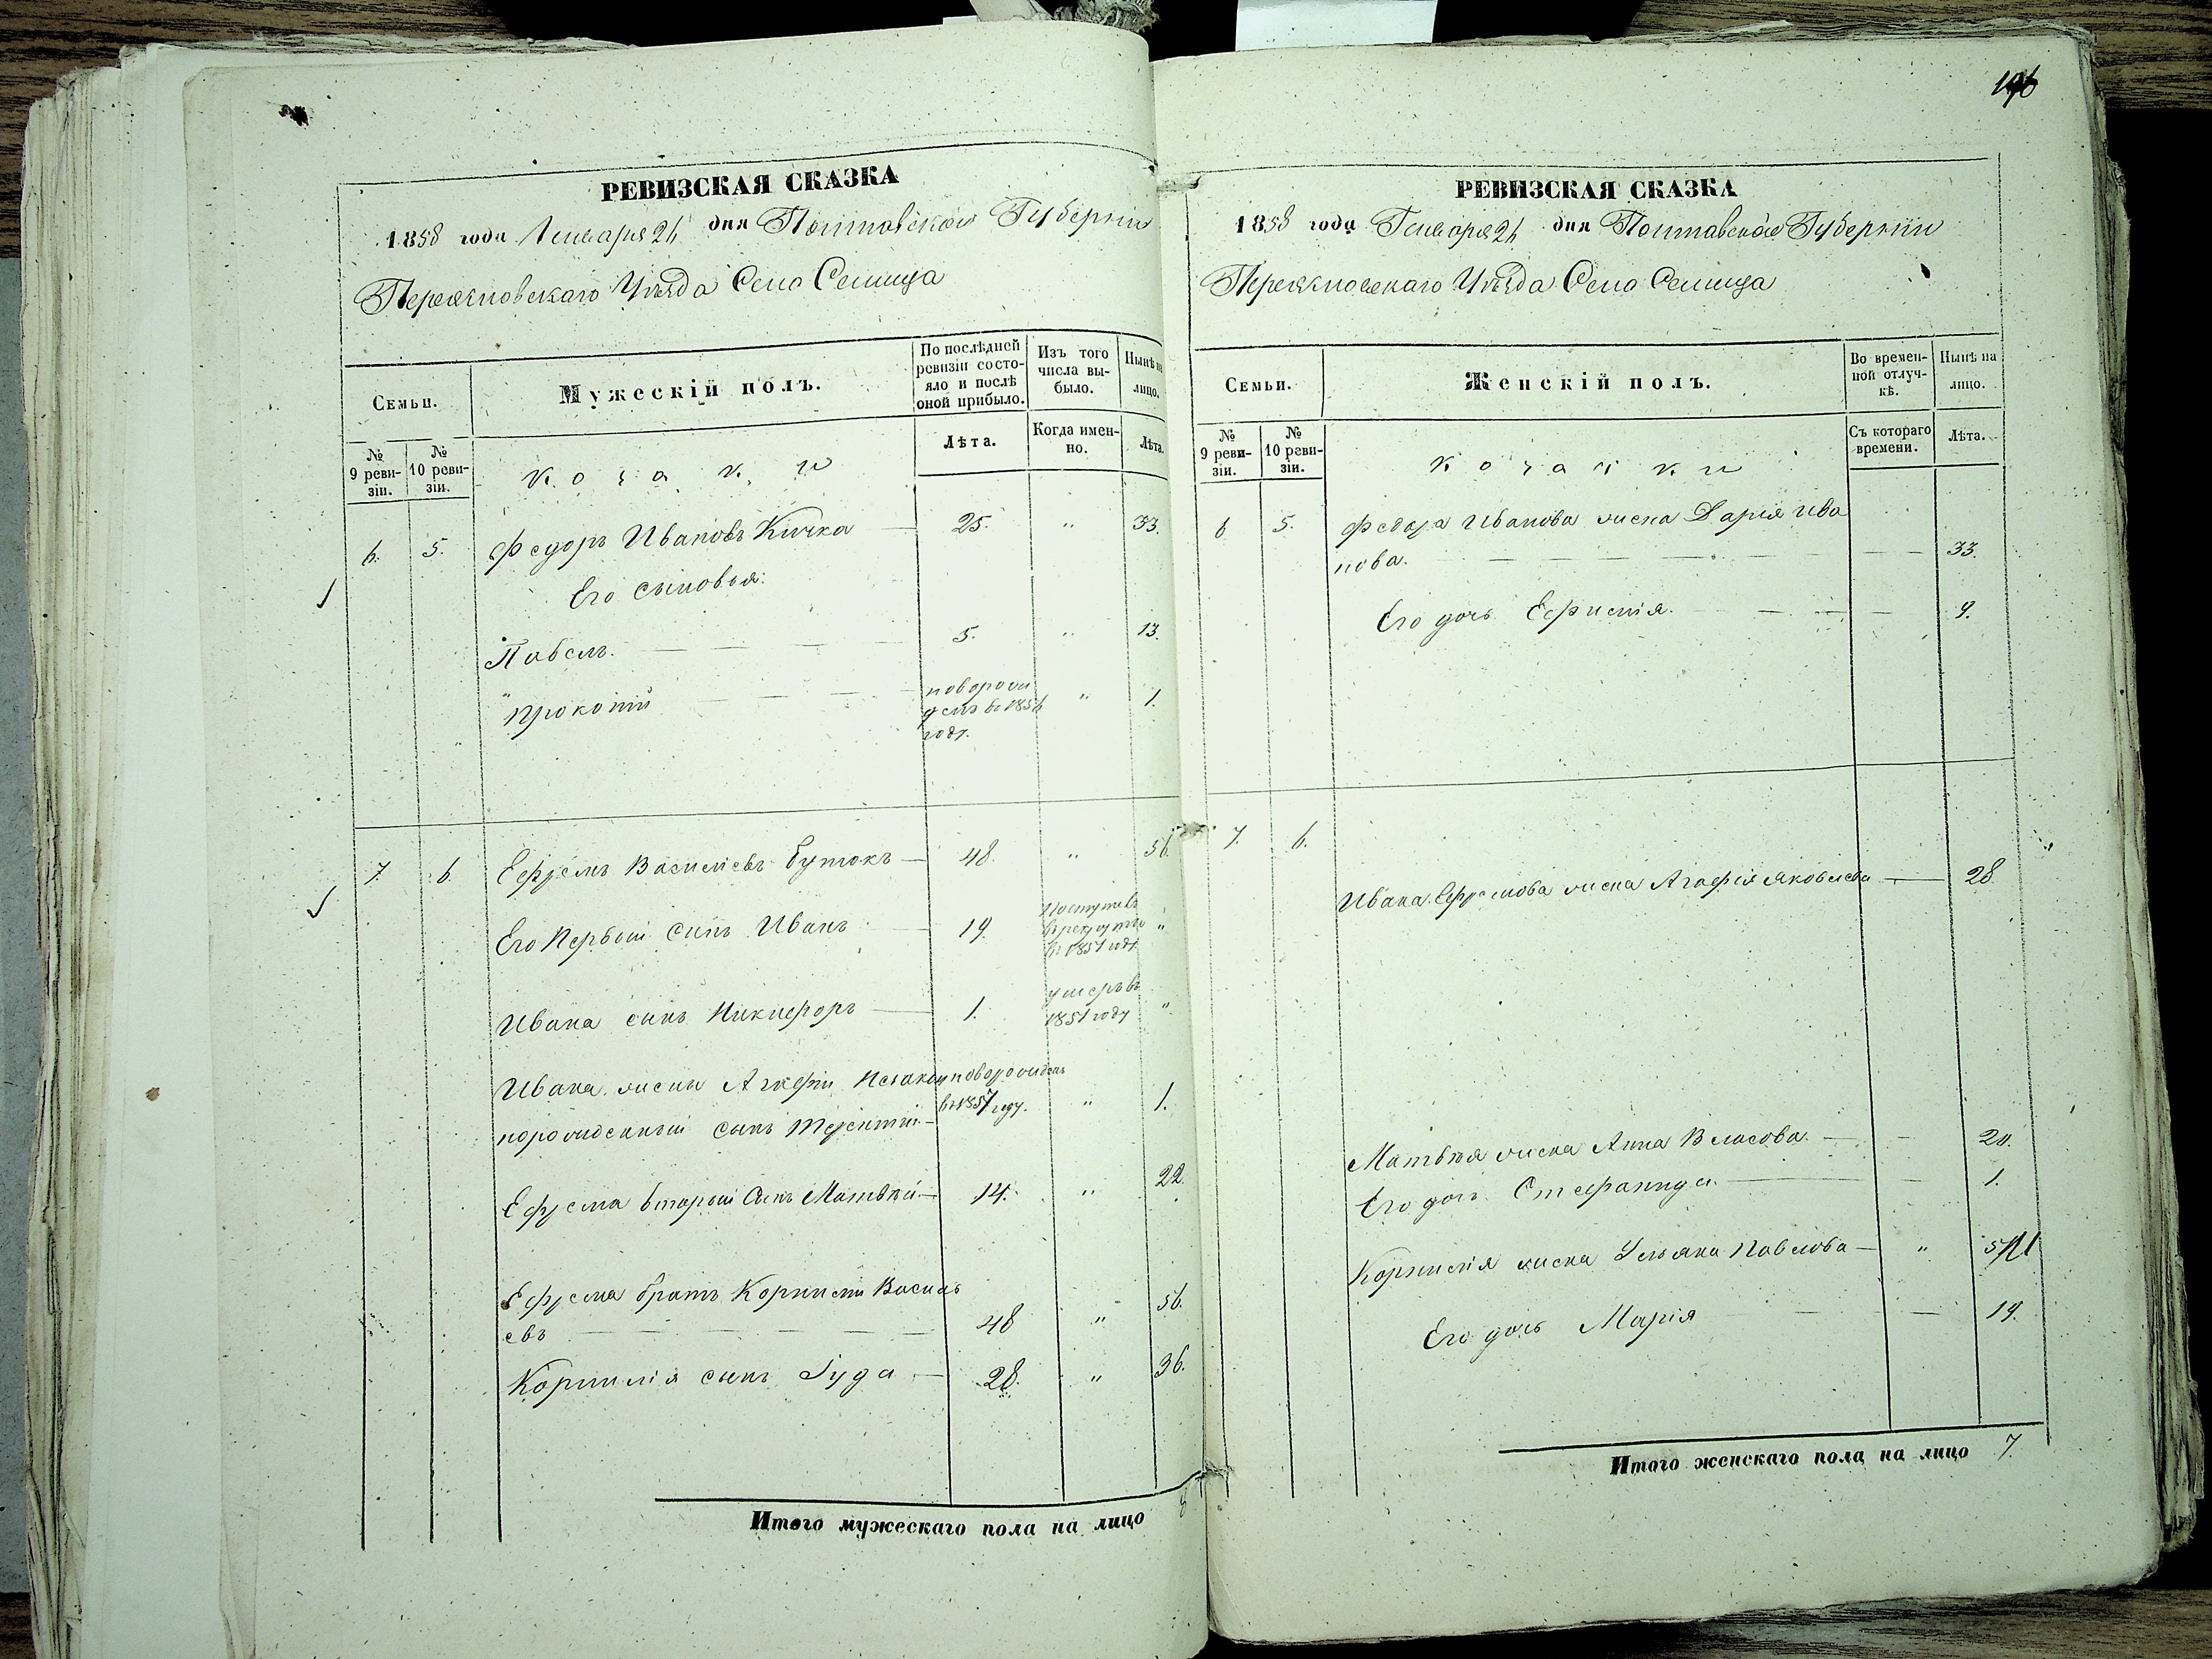 РЕВИЗСКАЯ СКАЗКА
1858 года Генваря 26 дня Полтавской Губернии
Переяславскаго Уѣзда Село Семища
Семьи.
Мужескій полъ.
По послѣдней ревизіи состояло и послѣ оной прибыло.
Изъ того числа выбыло.
Нынѣ на лицо.
№ 9 ревизіи.
№ 10 ревизіи.
козаки
Лѣта.
Когда именно.
Лѣта.
6. 5. Федоръ Ивановъ Кичка 25. " 33.
Его сыновья:
Павелъ. 5. " 13.
Прокопій новорожденъ въ 1856 году. " 1.
7. 6. Ефремъ Васильевъ Бутокъ 48. " 56.
Его Первый сынъ Иванъ 19. Поступилъ въ рекруты въ 1851 году "
Ивана сынъ Никифоръ 1. умеръ въ 1851 году "
Ивана жены Агафіи Незаконно новорожденъ
порожденный сынъ Терентій въ 1857 году. " 1.
Ефрема вторый Сынъ Матвѣй 14. " 22.
Ефрема братъ Корнилій Василь
евъ 48 " 56.
Корнилія сынъ Іуда 28. " 36.
Итого мужескаго пола на лицо 8
196
РЕВИЗСКАЯ СКАЗКА
1858 года Генваря 26 дня Полтавской Губерніи
Переяславскаго Уѣзда Село Семища
Семьи.
Женскій полъ.
Во временной отлучкѣ.
Нынѣ на лицо.
№ 9 ревизіи.
№ 10 ревизіи.
козачки
Съ котораго времени.
Лѣта.
6 5. Федора Иванова жена Дарія Ива
нова. 33.
Его дочь Ефимія. 9.
7. 6.
Ивана Ефремова жена Агафія Яковлева 28
Матвѣя жена Анна Власова. 20.
Его дочь Стефанида. 1.
Корнилія жена Ульяна Павлова "
Его дочь Марія 19.
Итого женскаго пола на лицо 7.